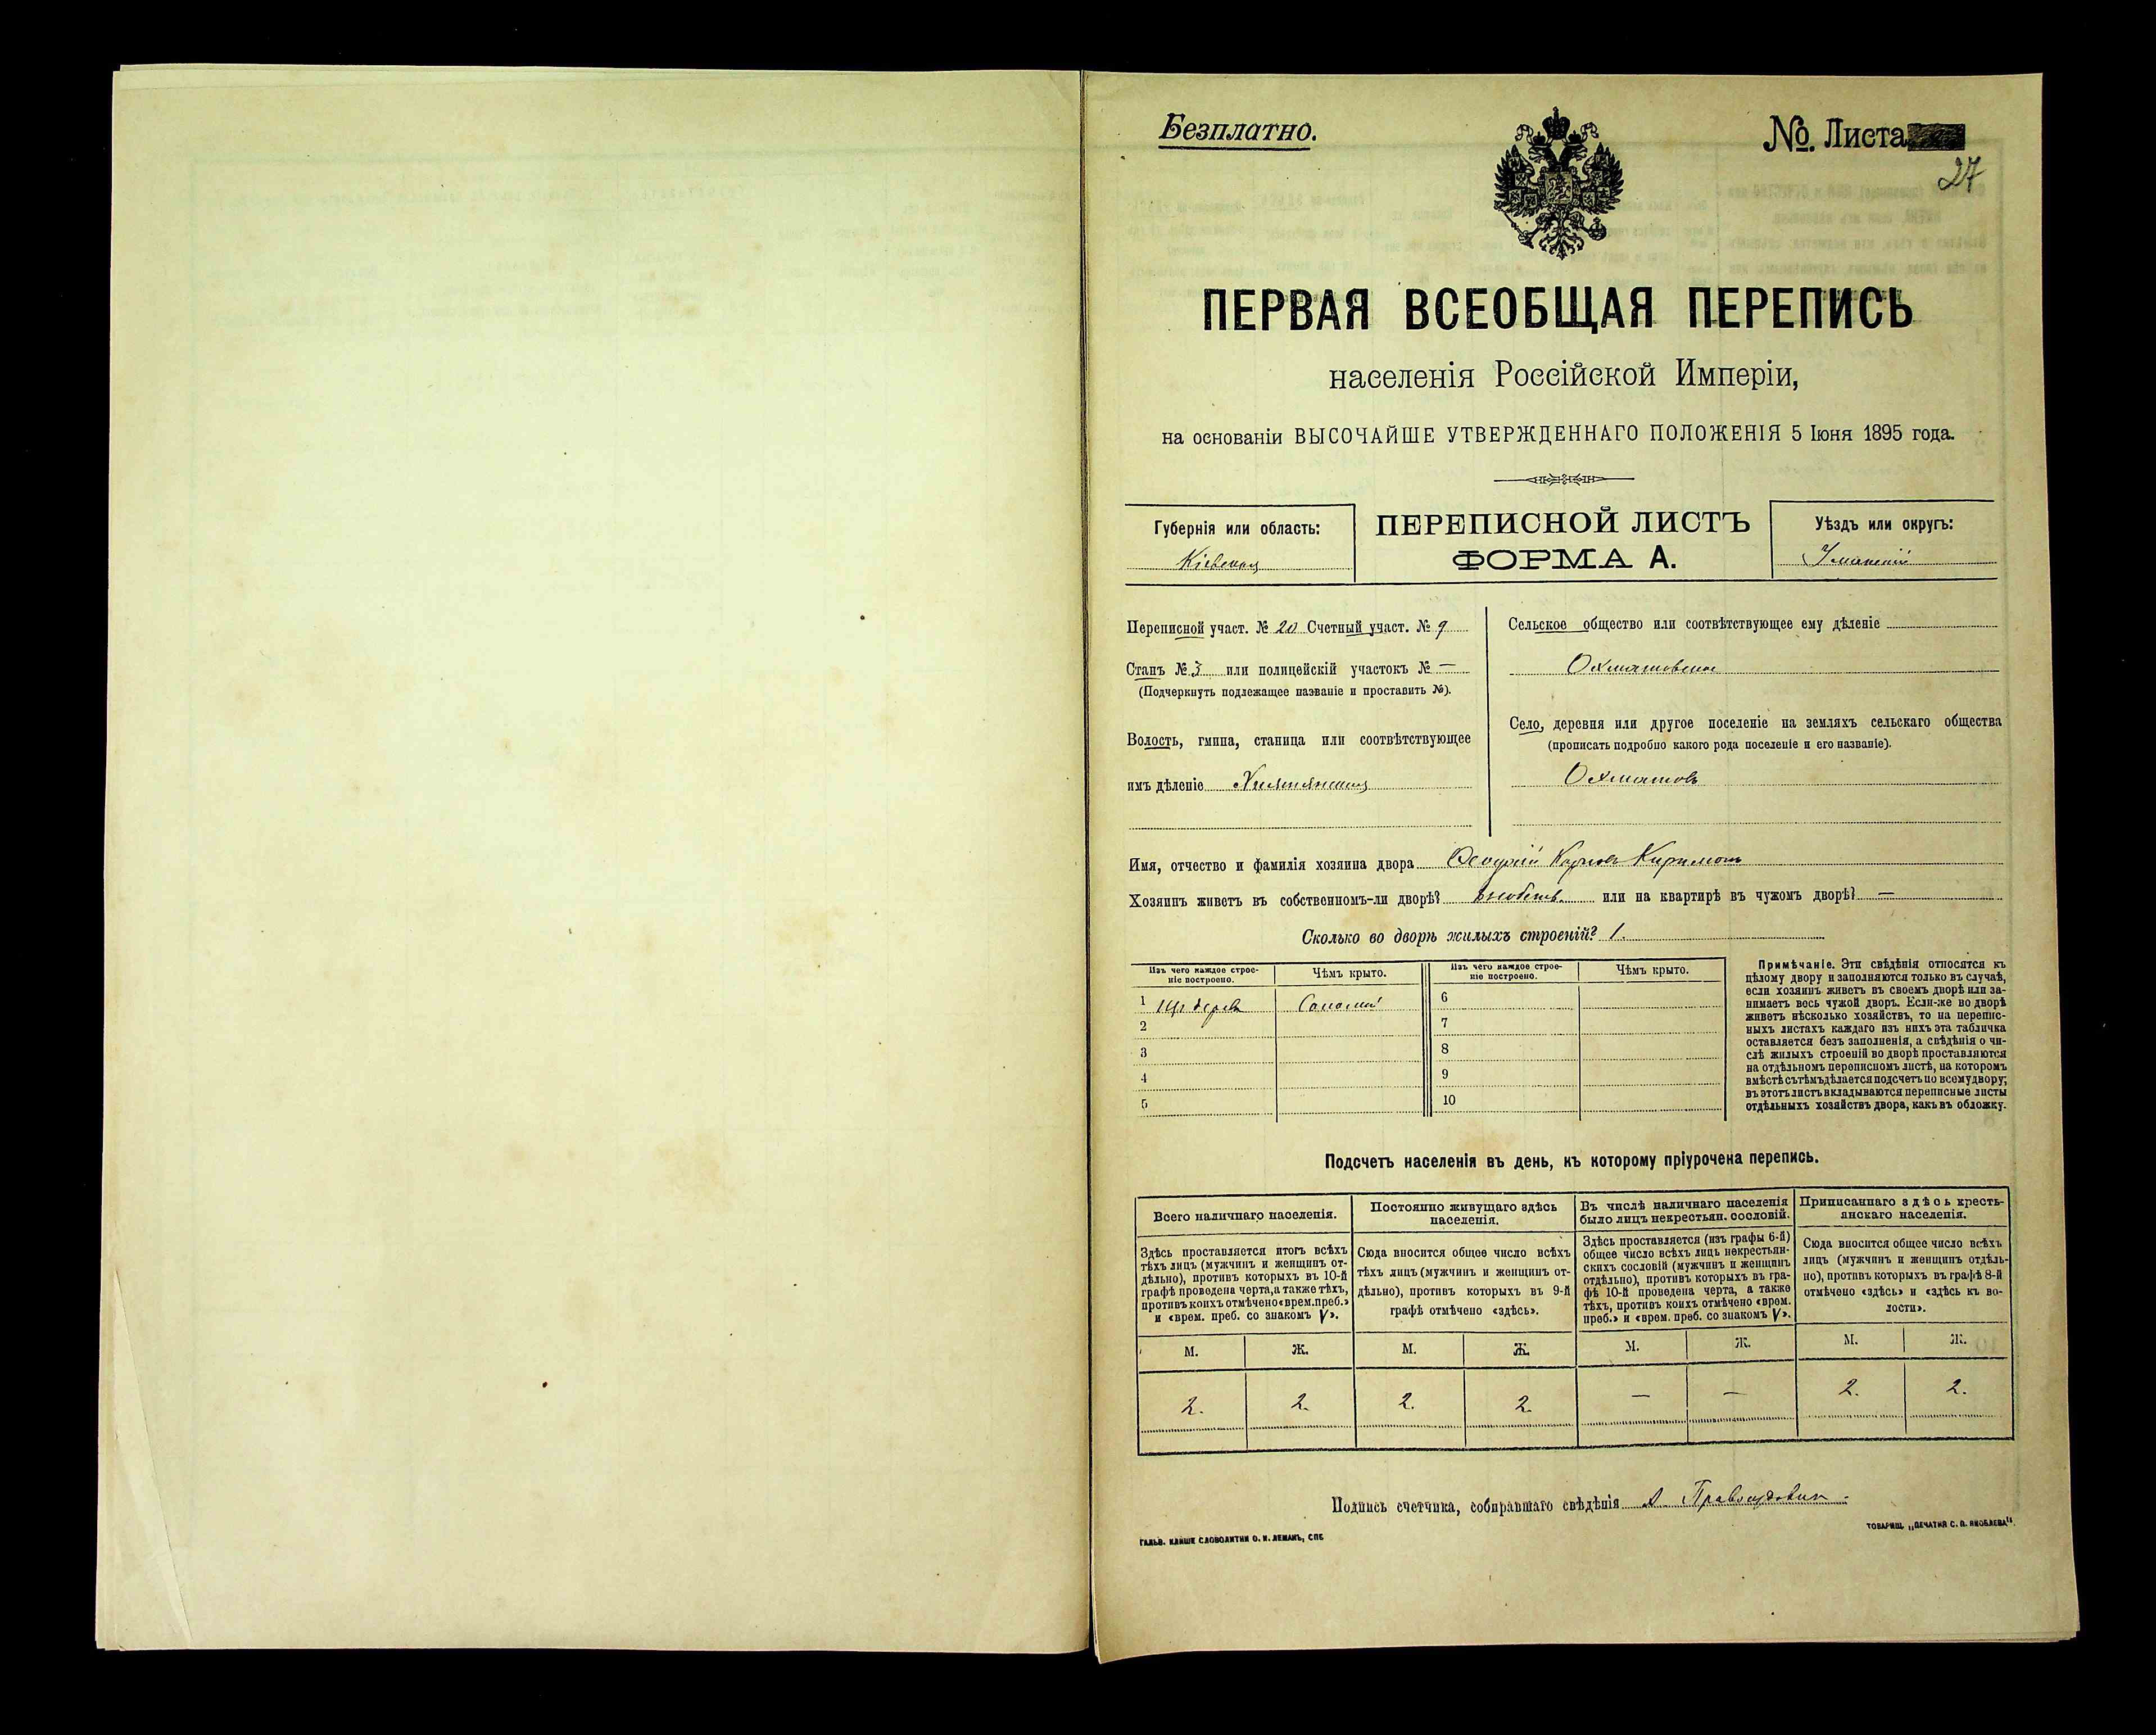 Безплатно.
№. Листа
27
ПЕРВАЯ ВСЕОБЩАЯ ПЕРЕПИСЬ
населенія Россійской Имперіи,
на основаніи ВЫСОЧАЙШЕ УТВЕРЖДЕННАГО ПОЛОЖЕНІЯ 5 Іюня 1895 года.
Губернія или область:
Кіевская
ПЕРЕПИСНОЙ ЛИСТЪ
ФОРМА А.
Уѣздъ или округъ:
Уманскій
Переписной участ. № 20 Счетный участ. № 9
Станъ № 3 или полицейскій участокъ № —
(Подчеркнуть подлежащее названіе и проставить №).
Волость, гмина, станица или соотвѣтствующее
имъ дѣленіе
Сельское общество или соотвѣтствующее ему дѣленіе
Охматовское
Село, деревня или другое поселеніе на земляхъ сельскаго общества
(прописать подробно какого рода поселеніе и его названіе).
Охматовъ
Имя, отчество и фамилія хозяина двора
Хозяинъ живетъ въ собственномъ-ли дворѣ? въ собств. или на квартирѣ въ чужомъ дворѣ? —
Сколько во дворѣ жилыхъ строеній? 1.
Изъ чего каждое строе-
ніе построено.
Чѣмъ крыто.
Изъ чего каждое строе-
ніе построено.
Чѣмъ крыто.
1 изъ дерева Соломой
2
3
4
5
6
7
8
9
10
Примѣчаніе. Эти свѣдѣнія относятся къ
цѣлому двору и заполняются только въ случаѣ,
если хозяинъ живетъ въ своемъ дворѣ или за-
нимаетъ весь чужой дворъ. Если-же во дворѣ
живетъ нѣсколько хозяйствъ, то на перепис-
ныхъ листахъ каждаго изъ нихъ эта табличка
оставляется безъ заполненія, а свѣдѣнія о чи-
слѣ жилыхъ строеній во дворѣ проставляются
на отдѣльномъ переписномъ листѣ, на которомъ
вмѣстѣ съ тѣмъ дѣлается подсчетъ по всему двору;
въ этотъ листъ вкладываются переписные листы
отдѣльныхъ хозяйствъ двора, какъ въ обложку.
Подсчетъ населенія въ день, къ которому пріурочена перепись.
Всего наличнаго населенія.
Здѣсь проставляется итогъ всѣхъ
тѣхъ лицъ (мужчинъ и женщинъ от-
дѣльно), противъ которыхъ въ 10-й
графѣ проведена черта, а также тѣхъ,
противъ коихъ отмѣчено «врем. преб.»
и «врем. преб. со знакомъ V».
Постоянно живущаго здѣсь
населенія.
Сюда вносится общее число всѣхъ
тѣхъ лицъ (мужчинъ и женщинъ от-
дѣльно), противъ которыхъ въ 9-й
графѣ отмѣчено «здѣсь».
Въ числѣ наличнаго населенія
было лицъ некрестьян. сословій.
Здѣсь проставляется (изъ графы 6-й)
общее число всѣхъ лицъ некрестьян-
скихъ сословій (мужчинъ и женщинъ
отдѣльно), противъ которыхъ въ гра-
фѣ 10-й проведена черта, а также
тѣхъ, противъ коихъ отмѣчено «врем.
преб.» и «врем. преб. со знакомъ V».
Приписаннаго здѣсь кресть-
янскаго населенія.
Сюда вносится общее число всѣхъ
лицъ (мужчинъ и женщинъ отдѣль-
но), противъ которыхъ въ графѣ 8-й
отмѣчено «здѣсь» и «здѣсь къ во-
лости».
М. Ж. М. Ж. М. Ж. М. Ж.
2. 2. 2. 2. — — 2. 2.
Подпись счетчика, собиравшаго свѣдѣнія
ГАЛЬВ. КЛИШЕ СЛОВОЛИТНИ О. И. ЛЕМАНЪ, СПБ
ТОВАРИЩ. „ПЕЧАТНЯ С. П. ЯКОВЛЕВА“.